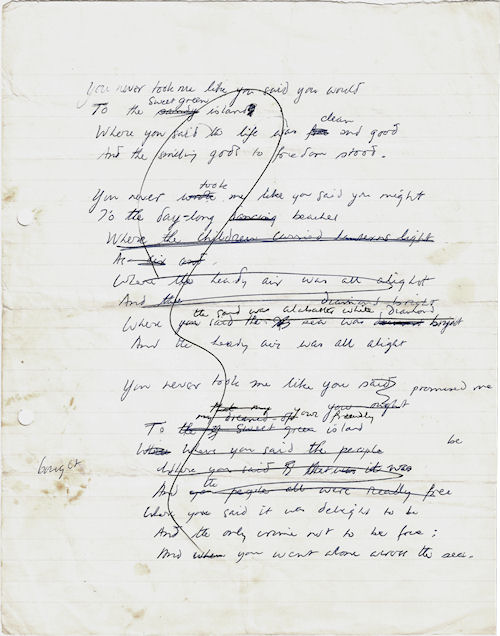 You never took me like you said you would
sweet green
To the sandy island
clean
Where you said the life was and good
And the smiling gods to freedom stood.
took
You never wrote me like you said you might
To the day-long dancing beaches
Where the children carried lanterns light
As
Where the heady air was all alight
And the diamond bright
the sand was alabaster white, diamond
Where you said the sea was bright
And the heady air was all alight
You never took me like you said promised me
you might
my dreamed of your friendly
To the of sweet green island
Where you said the people be
bought
Where you said it was
the
And you people all were really free
Where you said it was delight to be
And the only crime not to be free;
And when you went alone across the sea.